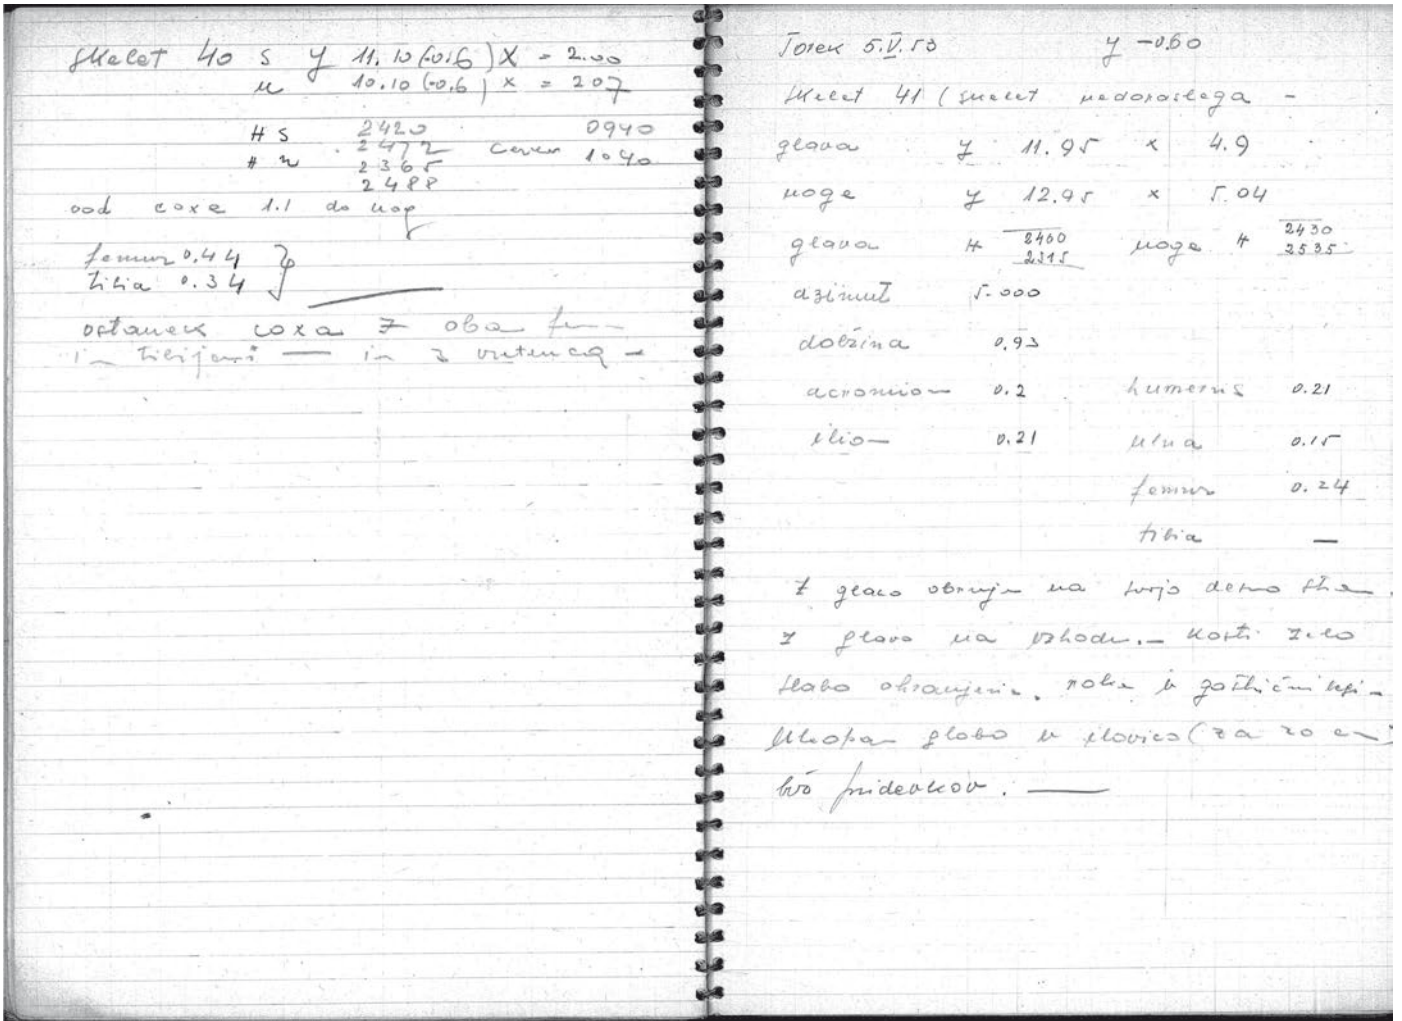 Skelet 40 S y 11.10 (-0.6) X = 2.00
n 10.10 (-0.6) x = 207
H S 2420 0940
2472 1040
H n 2365
2488
od coxe 1.1 do nog
femur 0.44
tibia 0.34
ostanek coxa z oba
in tibijami — in 3 vretenca
Torek 5.V.53 y -0.60
Skelet 41 (skelet nedorastega -
glava y 11.95 x 4.9
noge y 12.95 x 5.04
glava H 2400 noge H 2430
2515 2535
azimut 5.000
dolžina 0.93
acromion 0.2 humerus 0.21
ilion 0.21 ulna 0.15
femur 0.24
tibia —
Z glavo obrnjen na svojo desno
z glavo na vzhodu. — Kosti zelo
slabo ohranjene. roke v
Vkopan globo v ilovico (za 20 cm)
brö pridevkov. —